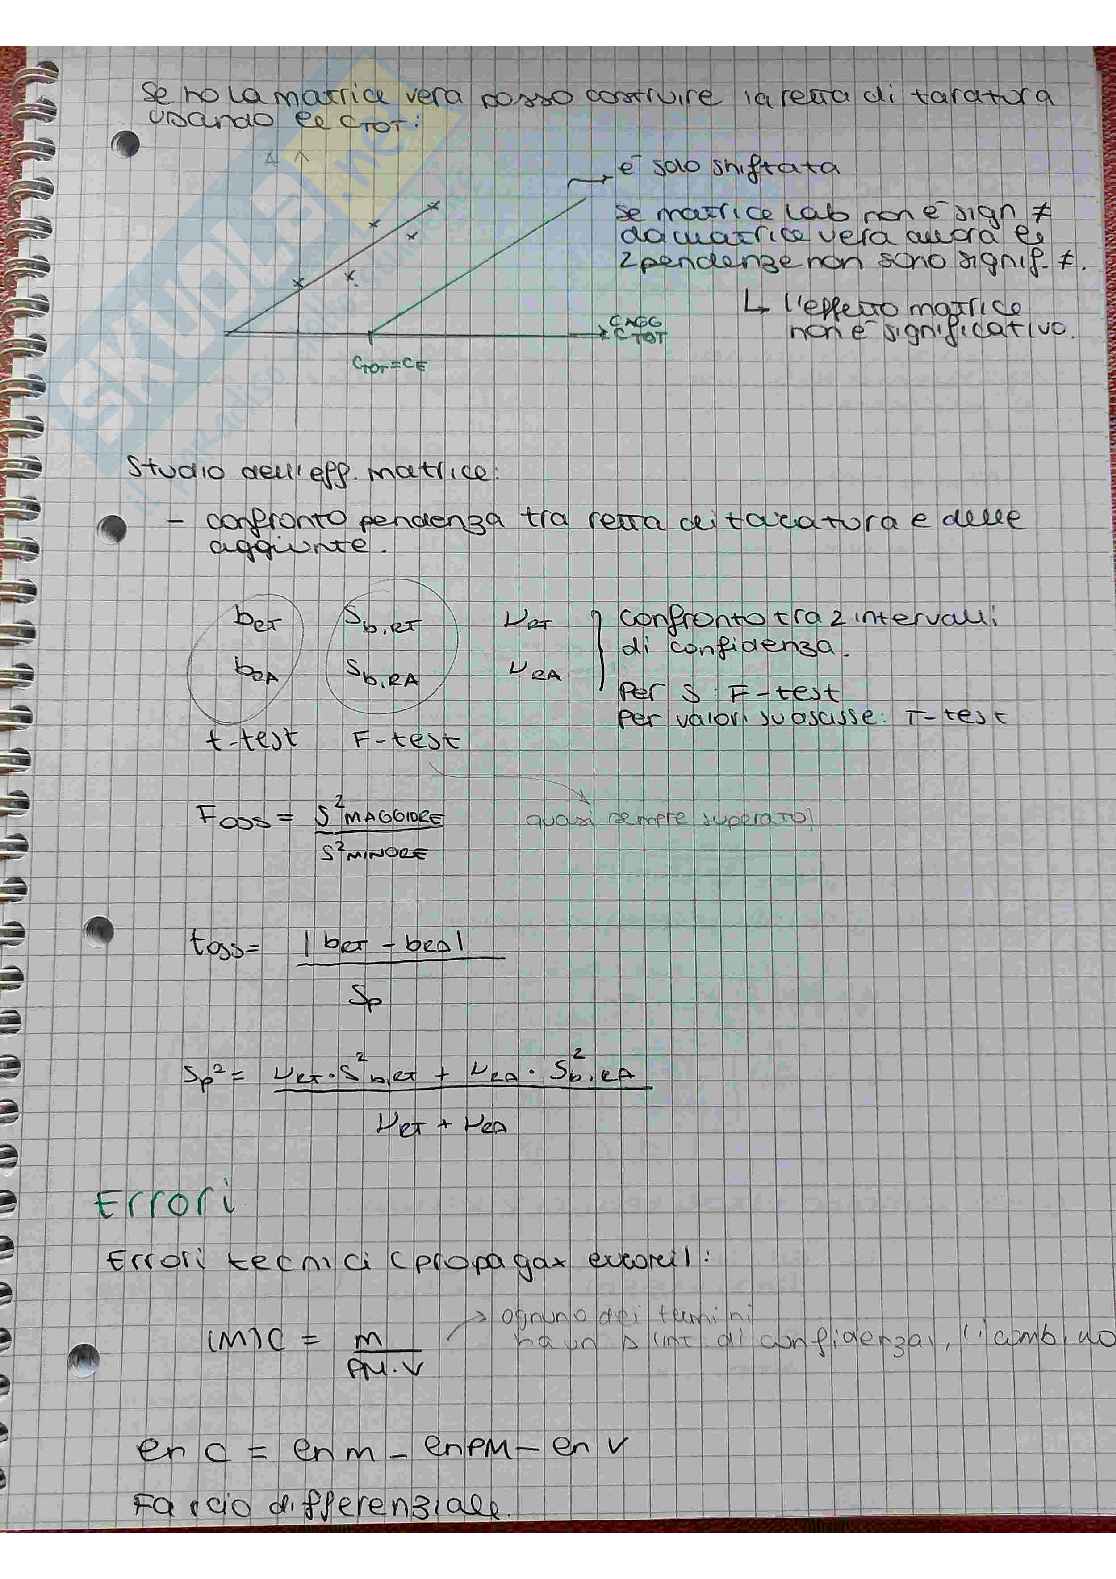 Se ho la matrice vera posso costruire la retta di taratura
usando le CTOT:
è solo shiftata
se matrice lab non è sign ≠
da matrice vera allora le
2 pendenze non sono signif. ≠.
↳ l'effetto matrice
non è significativo.
CAGG
CTOT
CTOT = CE
Studio dell'eff. matrice:
- confronto pendenza tra retta di taratura e delle
aggiunte.
bRT Sb,RT νRT
bRA Sb,RA νRA
t-test F-test
confronto tra 2 intervalli
di confidenza.
Per S: F-test
Per valori su ascisse: T-test
Foss = S² MAGGIORE
S² MINORE
quasi sempre superato!
toss = |bRT - bRA|
Sp
Sp² = νRT · S²b,RT + νRA · S²b,RA
νRT + νRA
Errori
Errori tecnici (propagaz errore):
(M)C = m
PM·V
→ ognuno dei termini
ha un s (int. di confidenza), li combino
ln C = ln m - ln PM - ln V
Faccio differenziale.
SKUOLA.net